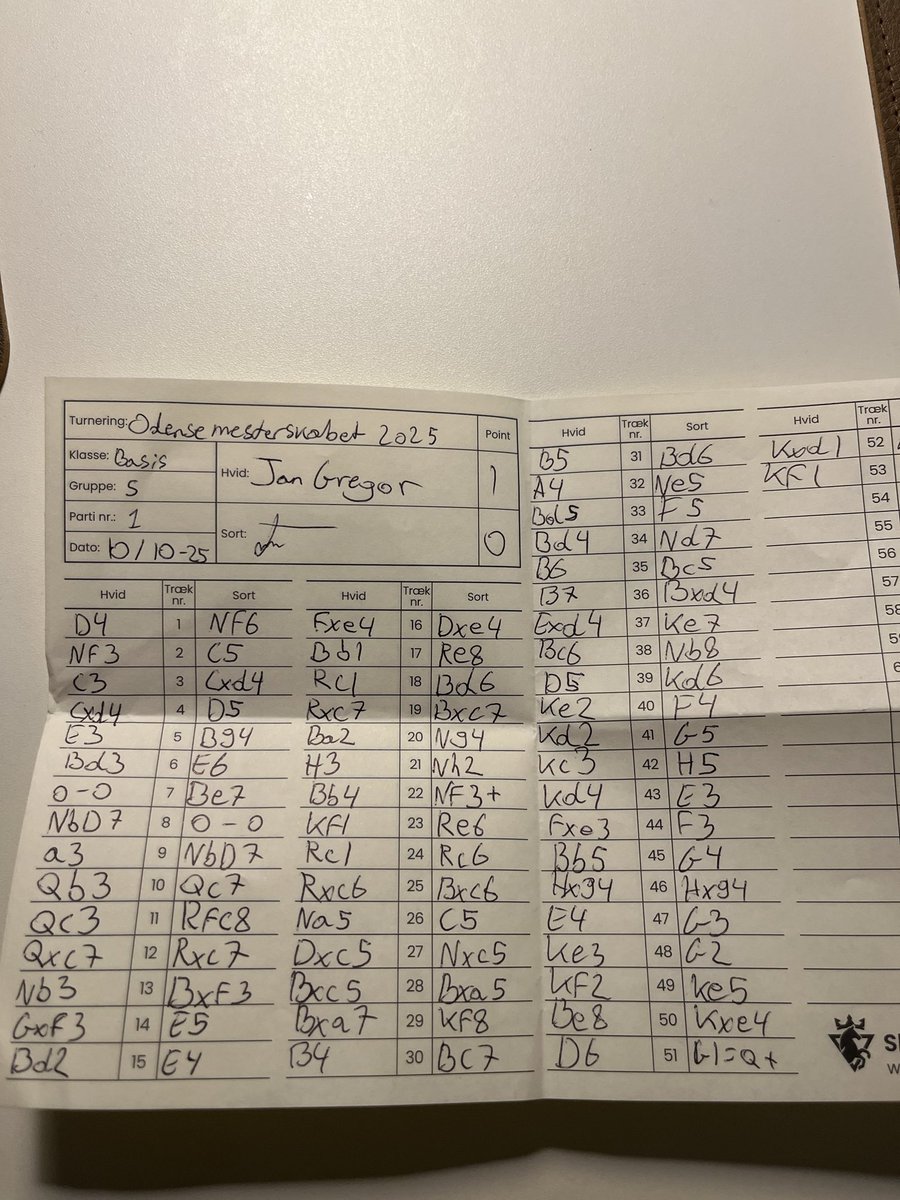 Turnering: Odensemesterskabet 2025 Point
Klasse: Basis
Gruppe: 5
Parti nr.: 1
Dato: 10/10-25
Hvid: Jan Gregor 1
Sort: 0
Hvid Træk nr. Sort
D4 1 NF6
NF3 2 C5
C3 3 Cxd4
Cxd4 4 D5
E3 5 Bg4
Bd3 6 E6
0-0 7 Be7
NbD7 8 0-0
a3 9 NbD7
Qb3 10 Qc7
Qc3 11 RFc8
Qxc7 12 Rxc7
Nb3 13 BxF3
GxF3 14 E5
Bd2 15 E4
Hvid Træk nr. Sort
Fxe4 16 Dxe4
Bb1 17 Re8
Rc1 18 Bd6
Rxc7 19 Bxc7
Ba2 20 Ng4
H3 21 Nh2
Bb4 22 NF3+
KF1 23 Re6
Rc1 24 Rc6
Rxc6 25 Bxc6
Na5 26 C5
Dxc5 27 Nxc5
Bxc5 28 Bxa5
Bxa7 29 KF8
B4 30 BC7
Hvid Træk nr. Sort
B5 31 Bd6
A4 32 Ne5
Bd5 33 F5
Bd4 34 Nd7
B6 35 Bc5
B7 36 Bxd4
Exd4 37 Ke7
Bc6 38 Nb8
D5 39 Kd6
Ke2 40 F4
Kd2 41 G5
Kc3 42 H5
Kd4 43 E3
Fxe3 44 F3
Bb5 45 G4
Hxg4 46 Hxg4
E4 47 G3
Ke3 48 G2
KF2 49 Ke5
Be8 50 Kxe4
D6 51 G1=Q+
Hvid Træk nr.
Kxd1 52
KF1 53
54
55
56
57
58